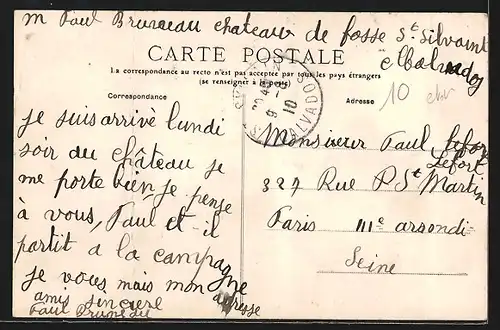 m Paul Bruneau chateau de fosse St Silvaint
Calvados
CARTE POSTALE
La correspondance au recto n'est pas acceptée par tous les pays étrangers
(se renseigner à la poste)
Correspondance
Adresse
10
CALVADOS
20 45
9 -
10
je suis arrivé lundi
soir du château je
me porte bien je pense
à vous, Paul et-il
partit a la campagne
je vous mais mon adresse
amis sincere
Paul Bruneau
Monsieur Paul Lefort
Lefort
327 Rue P St Martin
Paris IIIe arrondi
Seine